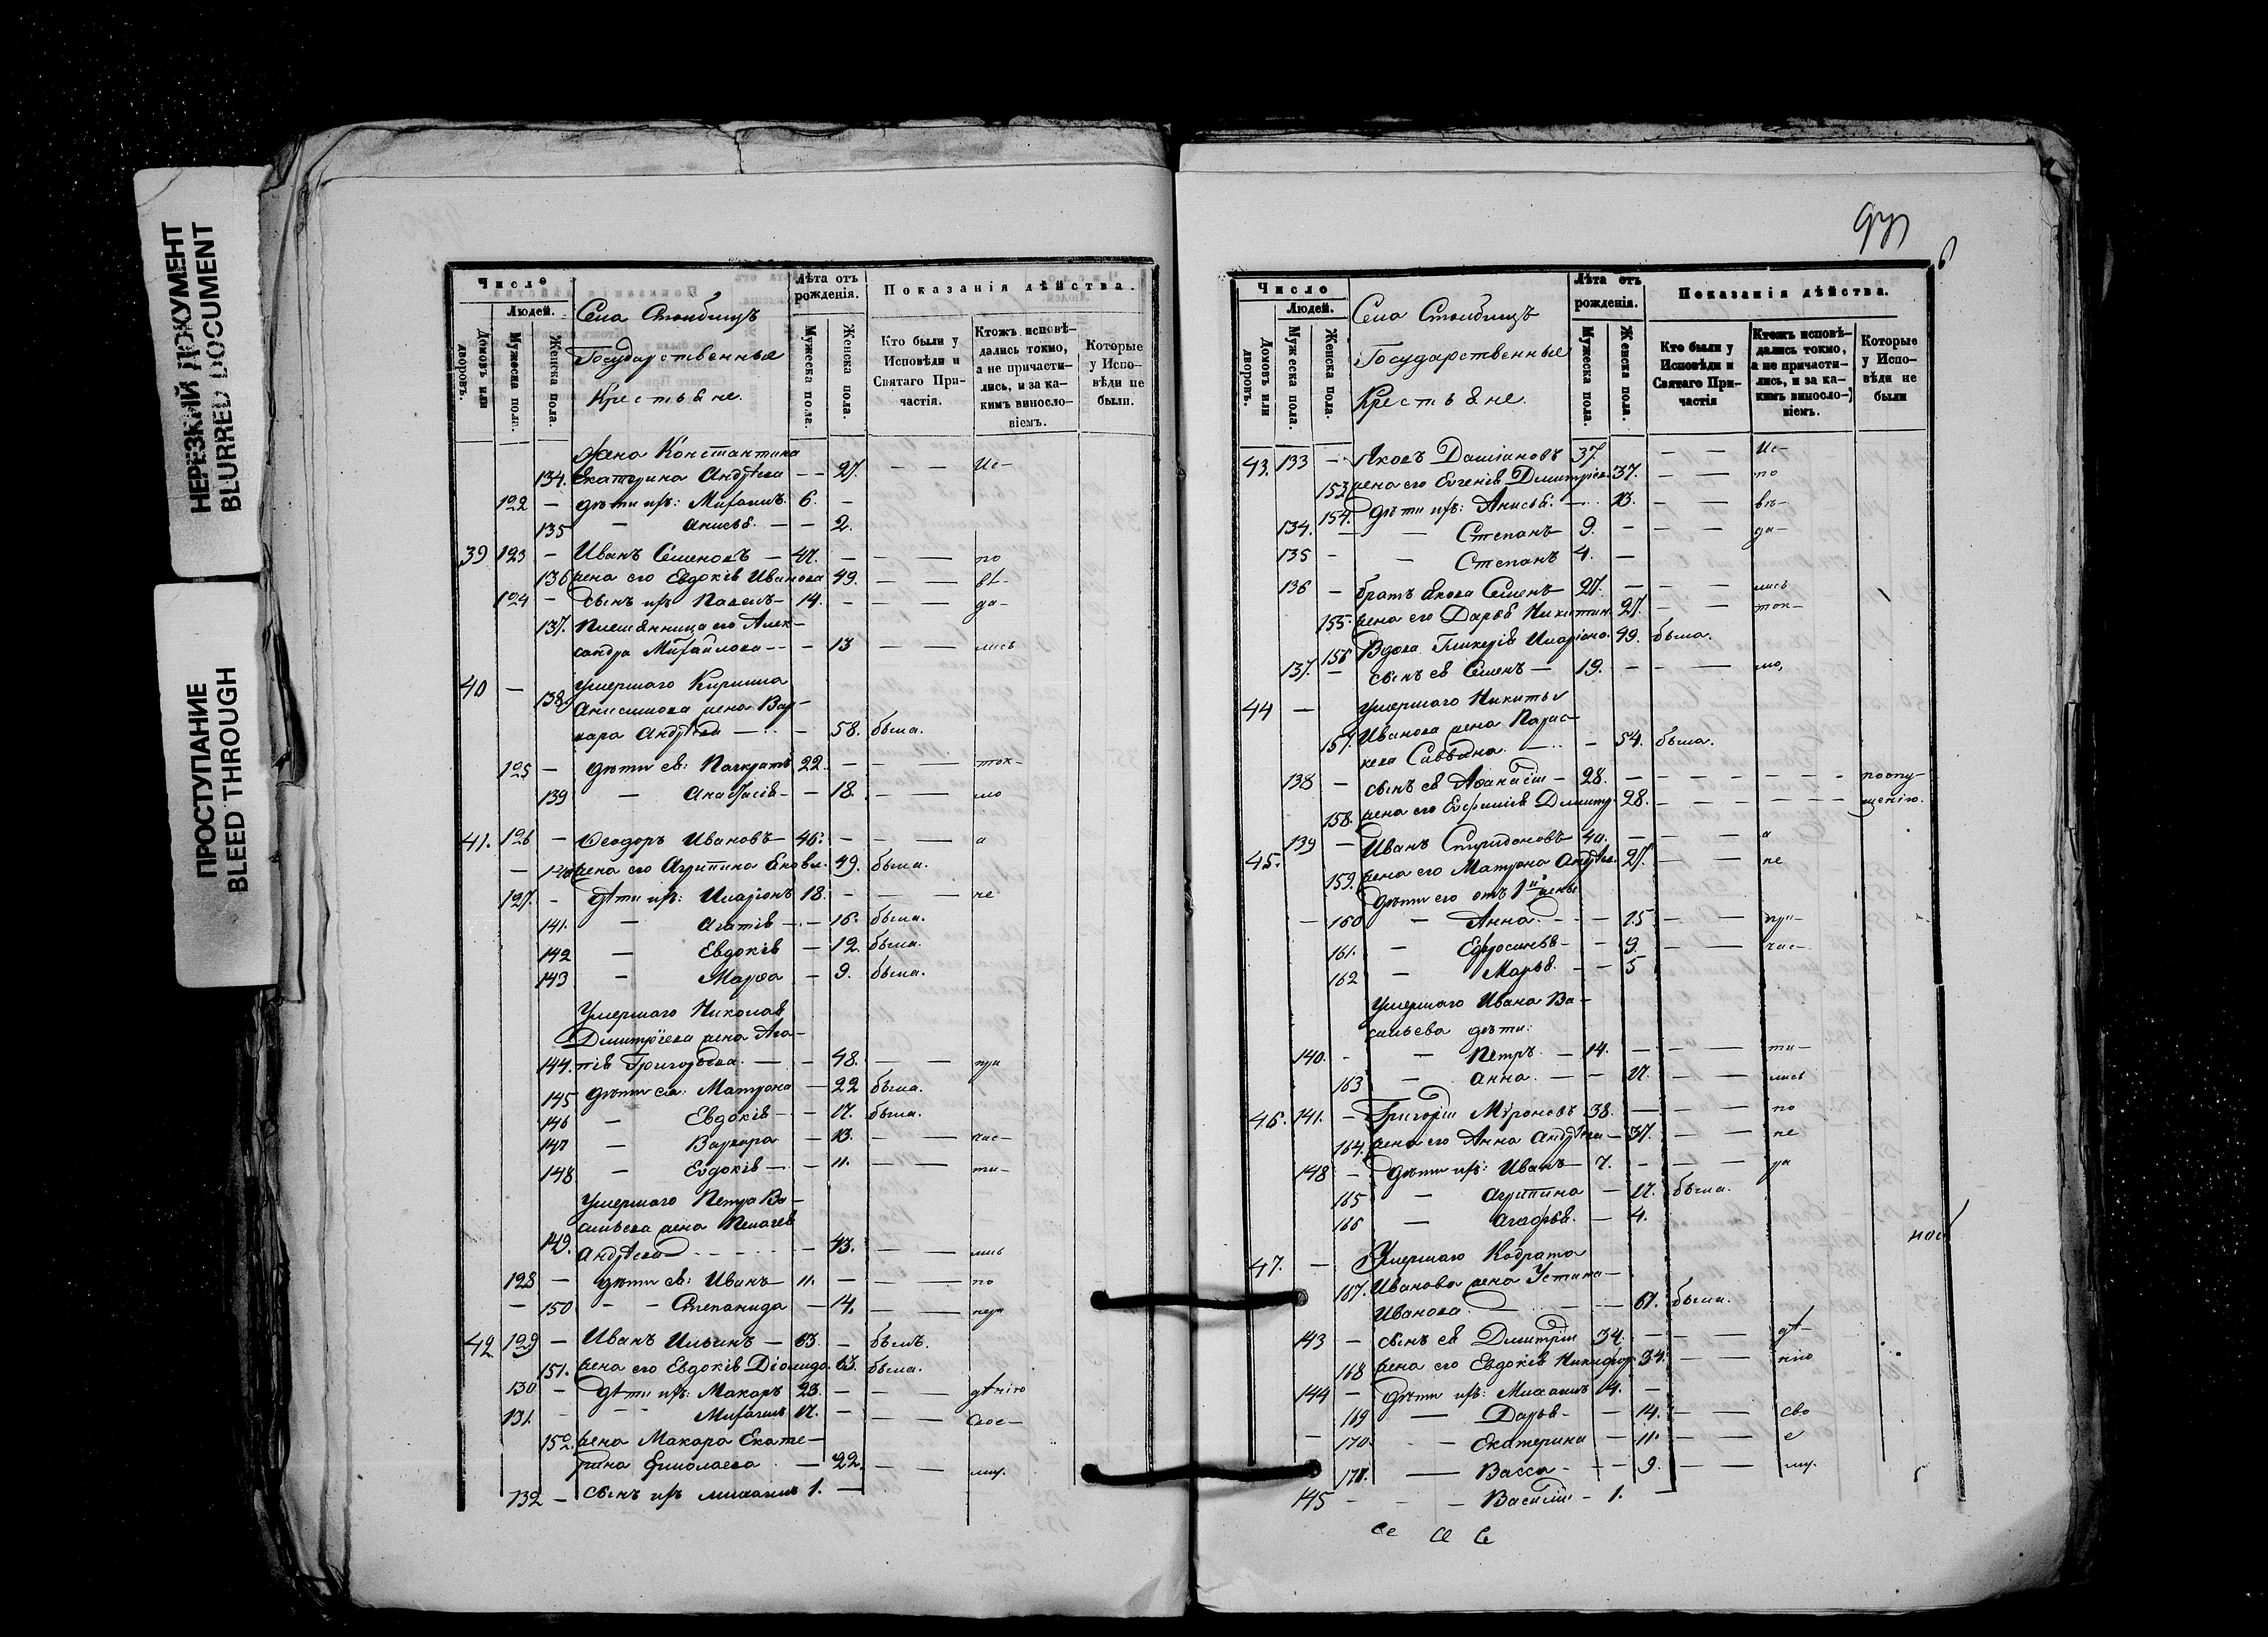 НЕРЕЗКИЙ ДОКУМЕНТ
BLURRED DOCUMENT
ПРОСТУПАНИЕ
BLEED THROUGH
Число
Людей.
Домовъ или дворовъ.
Мужеска пола.
Женска пола.
Села Столбищъ
Государственные
Крестьяне.
Лѣта отъ рожденія.
Мужеска пола.
Женска пола.
Показанія дѣйства.
Кто были у Исповѣди и Святаго При-
частія.
Ктожъ исповѣ-
дались токмо,
а не причасти-
лись, и за ка-
кимъ виносло-
віемъ.
Которые
у Испо-
вѣди не
были.
Жена Константина
134. Екатерина Андрѣева — — 27. — — Ис-
122 — дѣти ихъ: Михаилъ 6. —
135 — Анисья — — 2.
39 123 — Иванъ Семеновъ — 47. — — — по
136 жена его Евдокія Иванова 49. — — вѣ-
124 — сынъ ихъ Павелъ — 14. — — — да-
137. Племянница его Алек-
сандра Михайлова — — 13 — — лись
40 — умершаго Кирилла
138 Анисимова жена Вар-
вара Андрѣева — — 58. была.
125 — дѣти ея: Панкратъ 22. — — — ток-
139 — Анастасія — — 18. — — мо
41. 126 — Ѳеодоръ Ивановъ — 46. — — — а
— 140 жена его Агрипина Яковл. 49. была.
127. — дѣти ихъ: Иларіонъ 18. — — — не
141. — Агапія — — 16. была.
142 — Евдокія — 12. была.
143 — Марѳа — 9. была.
Умершаго Николая
Димитріева жена Ага-
144. пія Григорьева — — 48. — — при
145 дѣти ея: Матрона — 22 была.
146 — Евдокія — — 17. была.
147 — Варвара — 13. — — час-
148 — Евдокія — — 11. — — ти-
Умершаго Петра Ва-
сильева жена Пелагея
149. Андрѣева — 43. — — лись
128 — дѣти ея: Иванъ — 11. — — — по
— 150 — — Степанида — 14. — — нера
42 129 — Иванъ Ильинъ — 63. — былъ.
151. жена его Евдокія Діомидо. 63. была.
130 — дѣти ихъ: Макаръ 23. — — — дѣнію
131. — — Михаилъ 17. — — — свое-
152. жена Макара Екате-
рина Ермолаева — 22. — — му.
132 — сынъ ихъ михаилъ 1. —
Число
Людей.
Домовъ или дворовъ.
Мужеска пола.
Женска пола.
Села Столбищъ
Государственные
Крестьяне.
Лѣта отъ
рожденія.
Мужеска пола.
Женска пола.
Показанія дѣйства.
Кто были у
Исповѣди и
Святаго При-
частія
Ктожъ исповѣ-
дались токмо,
а не причасти-
лись, и за ка-
кимъ виносло-
віемъ.
Которые
у Испо-
вѣди не
были
43. 133 — Яковъ Даміановъ 37. — — Ис-
153 жена его Евгенія Димитріев. 37. — — по
154. Дѣти ихъ: Анисья — 13. — — вѣ-
134. — — Степанъ 9. — — — да-
135 — — Степанъ 4. —
136 — братъ Якова Семенъ 27. — — — лись
155 жена его Дарья Никитин. 27. — — ток-
156 Вдова Гликерія Иларіоно. 49. была.
137. — сынъ ея Семенъ — 19. — — — мо,
44 — умершаго Никиты
157. Иванова жена Парас-
кева Саввина — — 54. была.
138 — сынъ ея Аѳанасій — 28. — — — — — — по опу-
158. жена его Евфимія Димитр. 28. — — — — — щенію.
45. 139 — Иванъ Спиридоновъ 40. — — — а
159. жена его Матрона Андрѣев. 27. — — не
дѣти его отъ 1й жены
— 160 — Анна — — 15 — — при-
161. — Ефросинья — — 9. — — час-
162 — Марья — — 5
Умершаго Ивана Ва-
сильева дѣти:
140. — — Петръ — 14. — — — ти-
163 — Анна — — 17. — — лись
46. 141. — Григорій Мѵроновъ 38. — — — по
164. жена его Анна Андрѣева — 37. — — не
148 — дѣти ихъ: Иванъ — 7. — — — ра
165 — Агрипина — 17. была.
166 — Агафья — 4.
47. — Умершаго Кодрата
167. Иванова жена Устина —
Иванова — — 61. была.
143 — сынъ ея Димитрій 34. — — — дѣ-
168 жена его Евдокія Никифор. 34. — — нію
144 — дѣти ихъ: Михаилъ 14. —
169 — Дарья — — 14. — — сво
— 170. — — Екатерина — 11. — — е
171. — Васса — — 9. — — му.
145 — — — Василій — 1. —